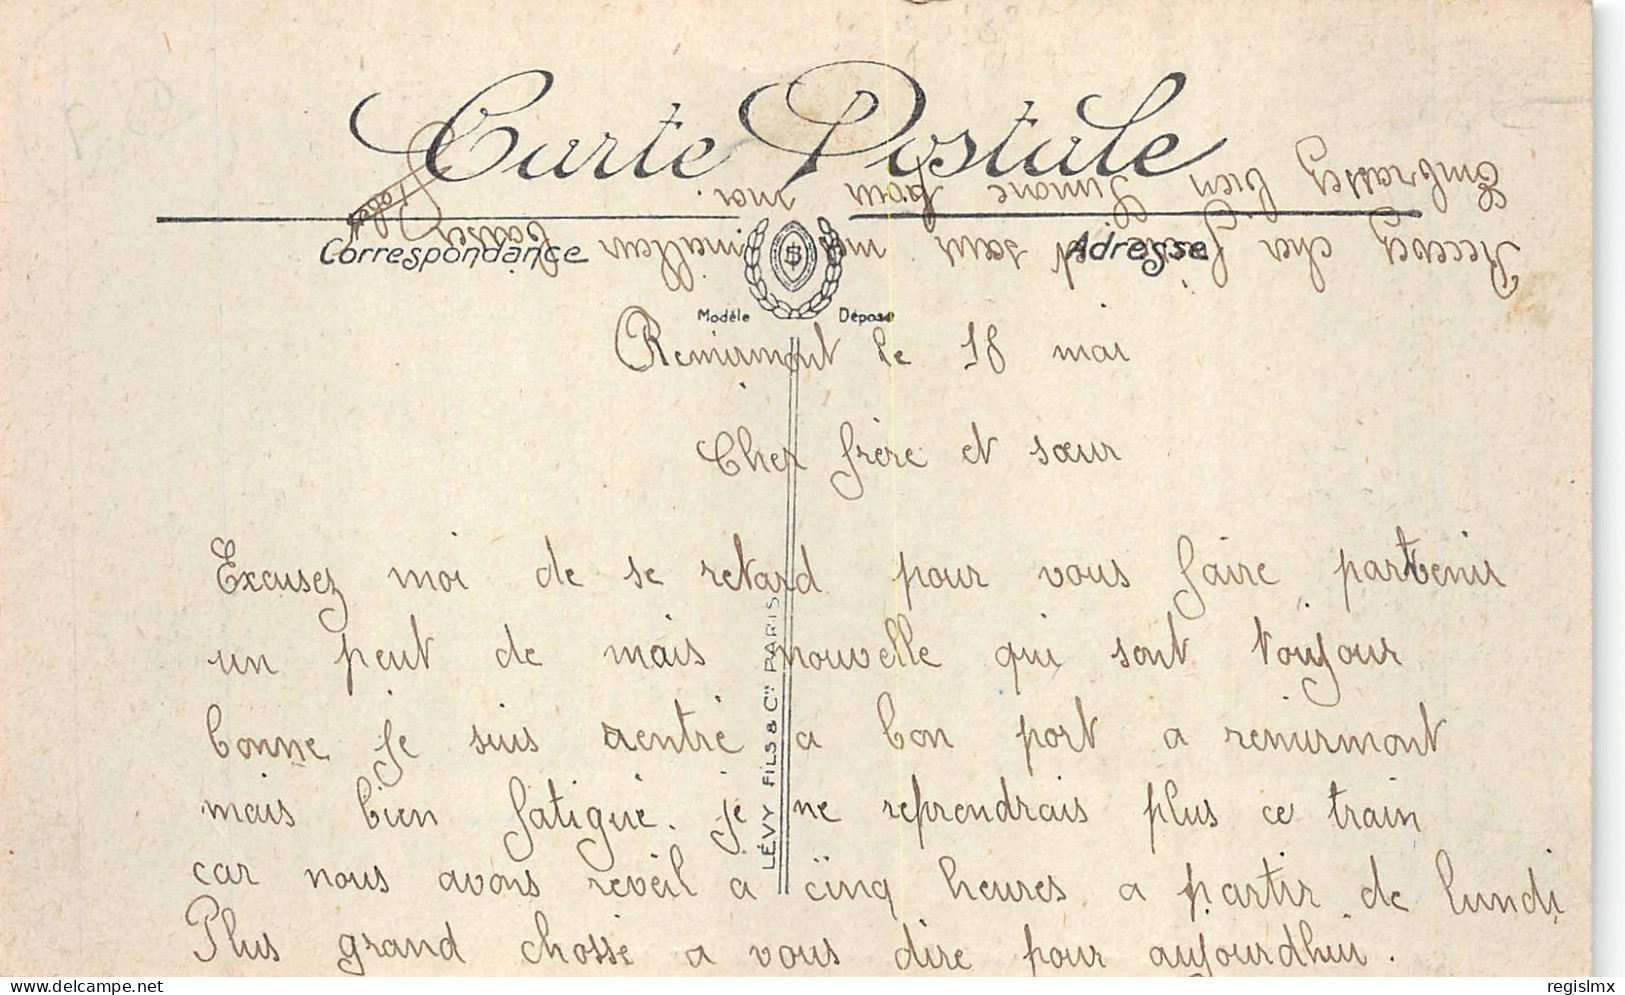 Carte Postale
Correspondance
Adresse
Modèle Déposé
LÉVY FILS & Cie PARIS
Remirmont le 18 mai
Cher frère et sœur
Excusez moi de se retard pour vous faire partenir
un peut de mais nouvelle qui sont toujour
bonne je suis rentré a bon port a remirmont
mais bien fatigué. je ne reprendrais plus ce train
car nous avons reveil a cinq heures a partir de lundi
Plus grand chosse a vous dire pour aujourdhui.
Recevez cher mes meilleur baiser
Embrassez bien Simone pour moi.
regislmx